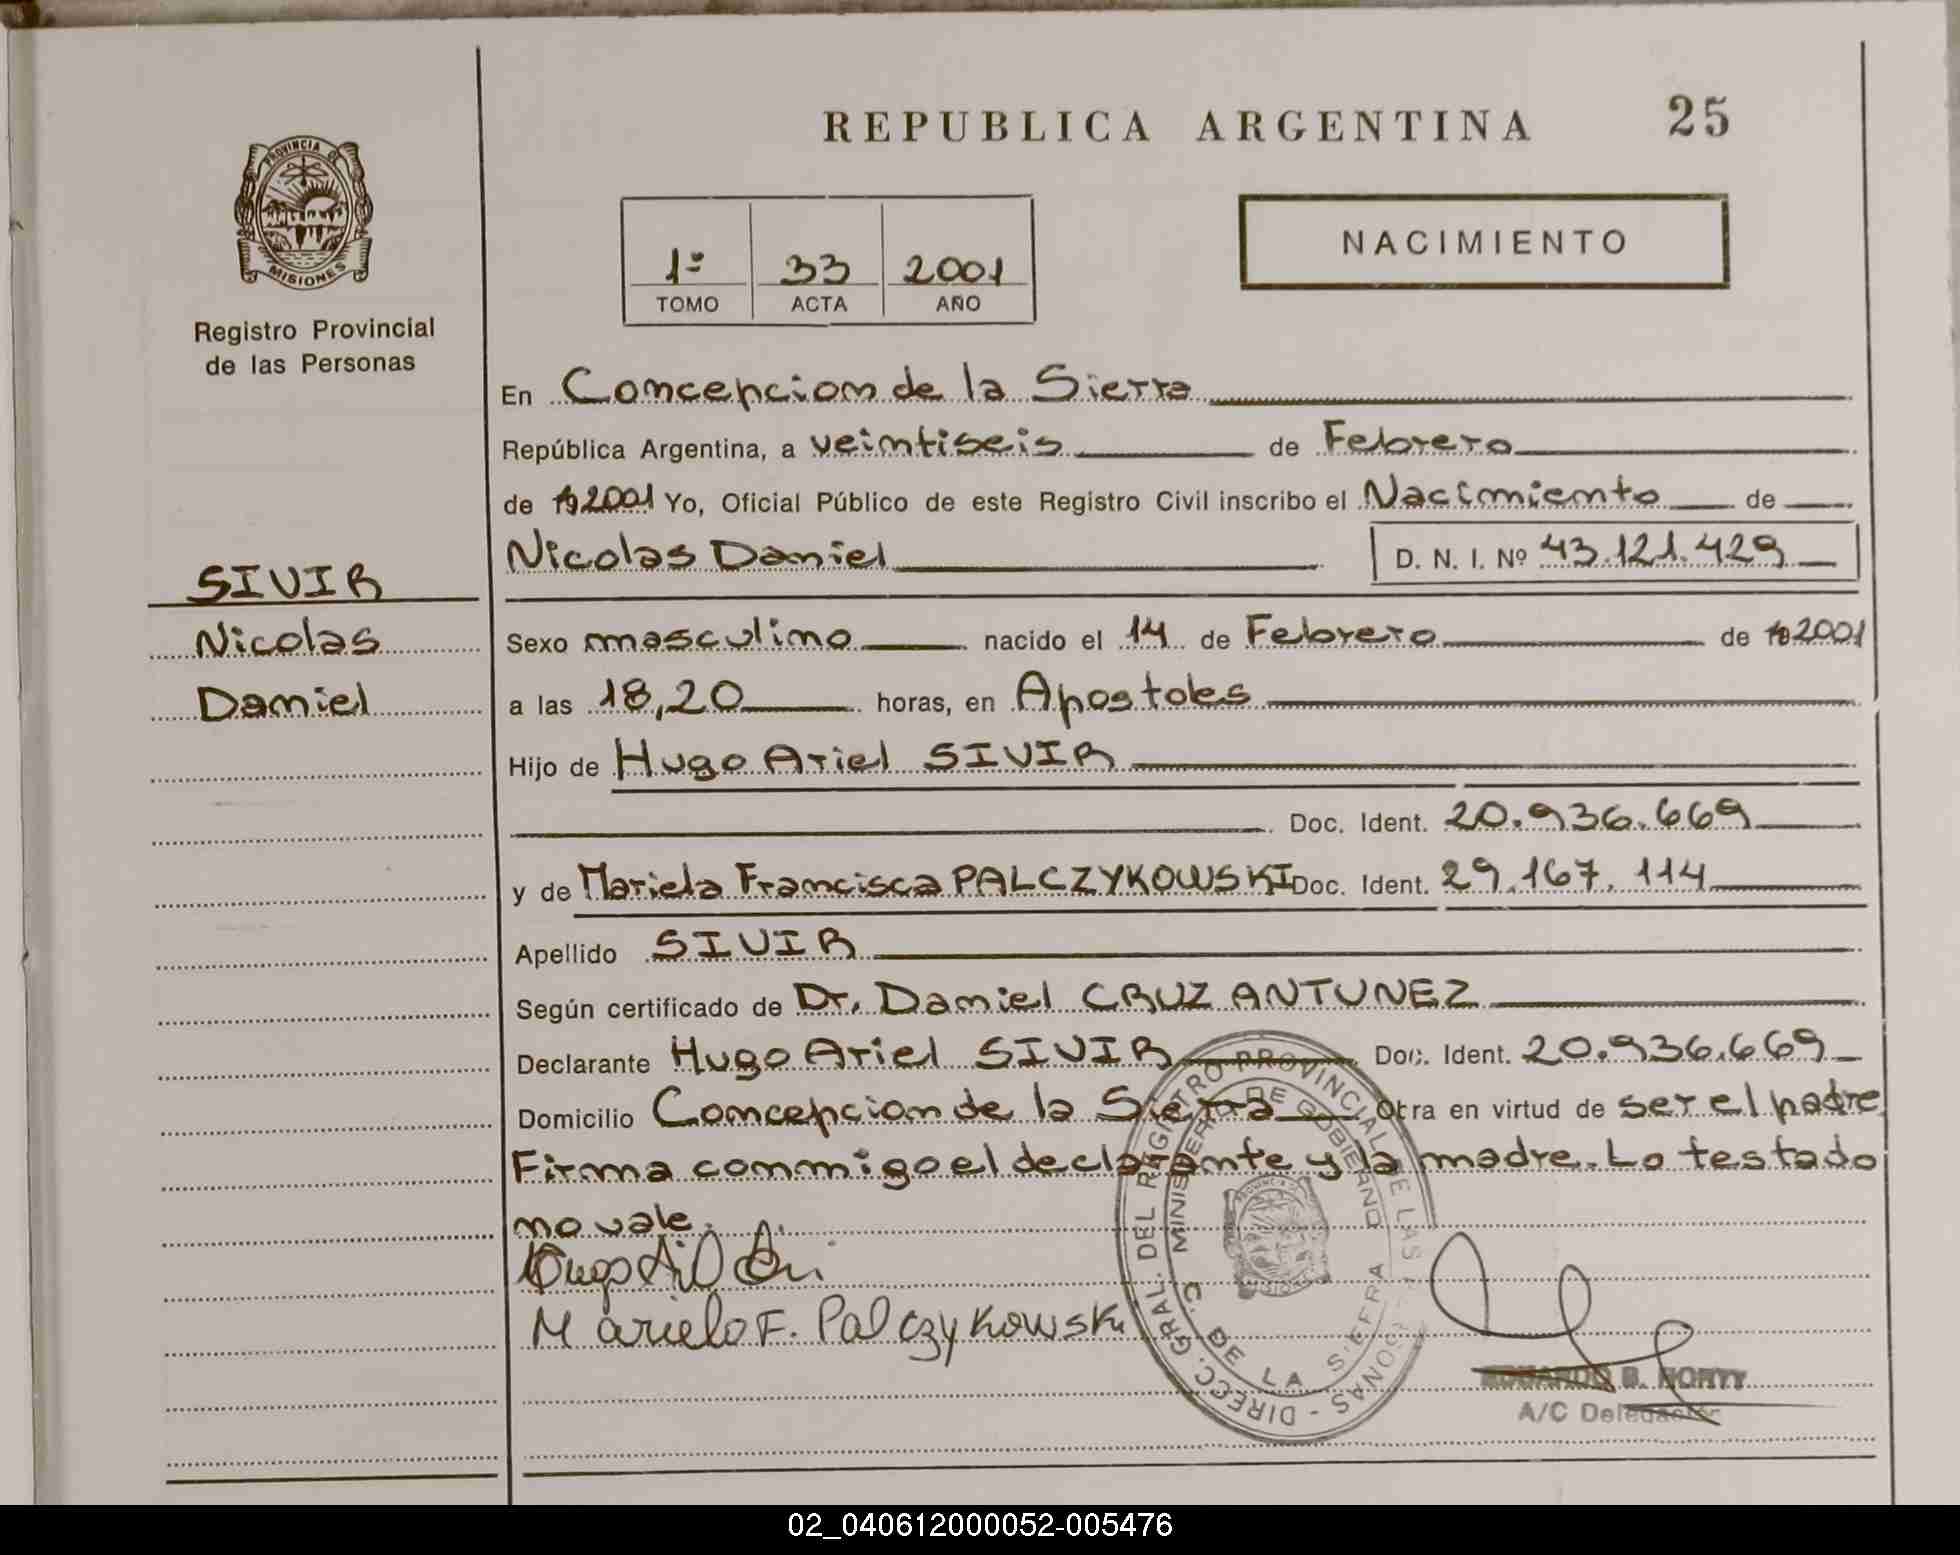 REPUBLICA ARGENTINA 25
PROVINCIA DE
MISIONES
Registro Provincial
de las Personas
1º 33 2001
TOMO ACTA AÑO
NACIMIENTO
En Concepcion de la Sierra
República Argentina, a veintiseis de Febrero
de 19 2001 Yo, Oficial Público de este Registro Civil inscribo el Nacimiento de
Nicolas Daniel D. N. I. Nº 43.121.429
SIVIR
Nicolas
Daniel
Sexo masculino nacido el 14 de Febrero de 19 2001
a las 18,20 horas, en Apostoles
Hijo de Hugo Ariel SIVIR
Doc. Ident. 20.936.669
y de Mariela Francisca PALCZYKOWSKI Doc. Ident. 29.167.114
Apellido SIVIR
Según certificado de Dr. Daniel CRUZ ANTUNEZ
Declarante Hugo Ariel SIVIR Doc. Ident. 20.936.669
Domicilio Concepcion de la Sierra Obra en virtud de ser el padre
Firma conmigo el declarante y la madre. Lo testado
no vale.
Mariela F. Palczykowski
DIRECC. GRAL. DEL REGISTRO PROVINCIAL DE LAS PERSONAS
MINISTERIO DE GOBIERNO
C. DE LA SIERRA
A/C Delegación
02_040612000052-005476